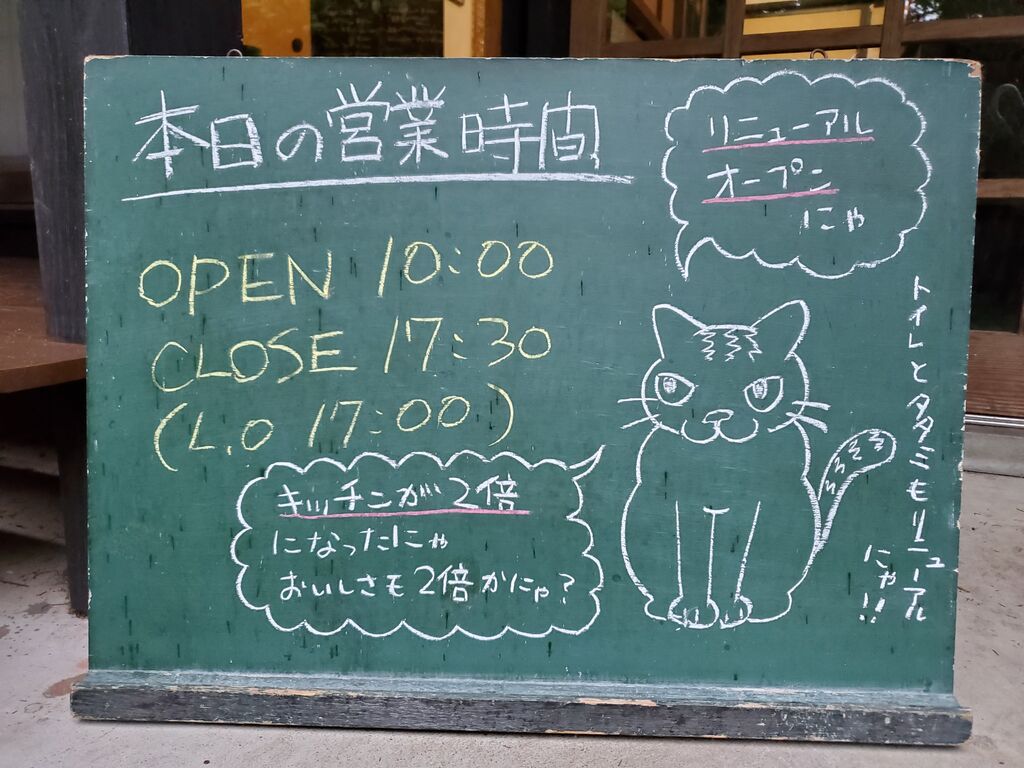 本日の営業時間
リニューアル
オープン
にゃ
OPEN 10:00
CLOSE 17:30
(L.O 17:00)
キッチンが2倍
になったにゃ
おいしさも2倍かにゃ?
トイレとタタミもリニューアル
にゃ!!